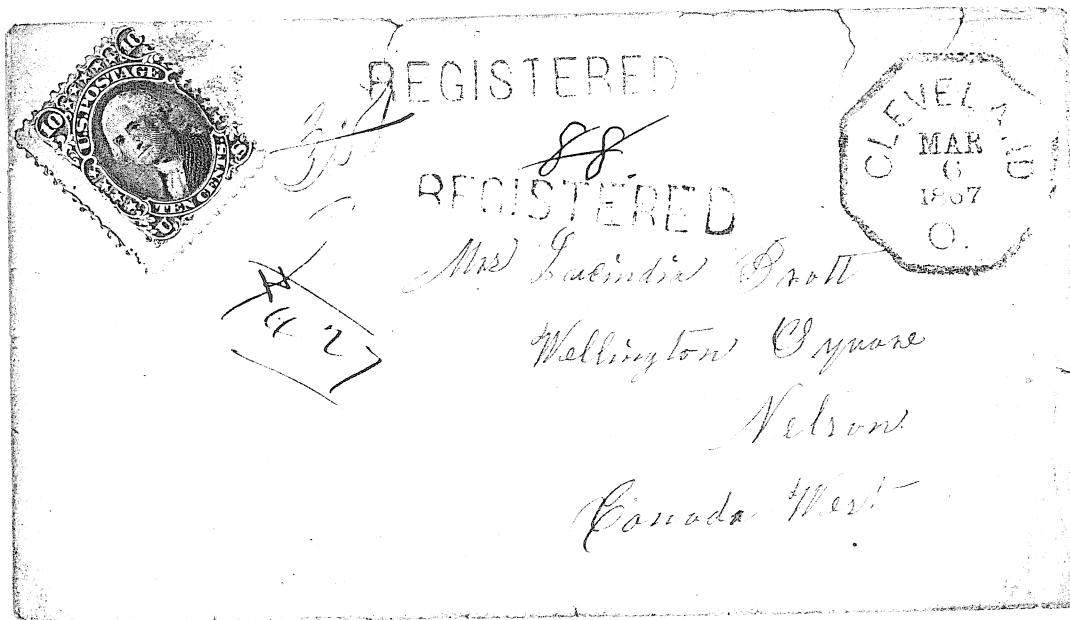 10 U.S. POSTAGE 10
U TEN CENTS S
REGISTERED
88.
REGISTERED
CLEVELAND
MAR
6
1867
O.
Mrs Lucinda Prott
Wellington Square
Nelson
Canada West